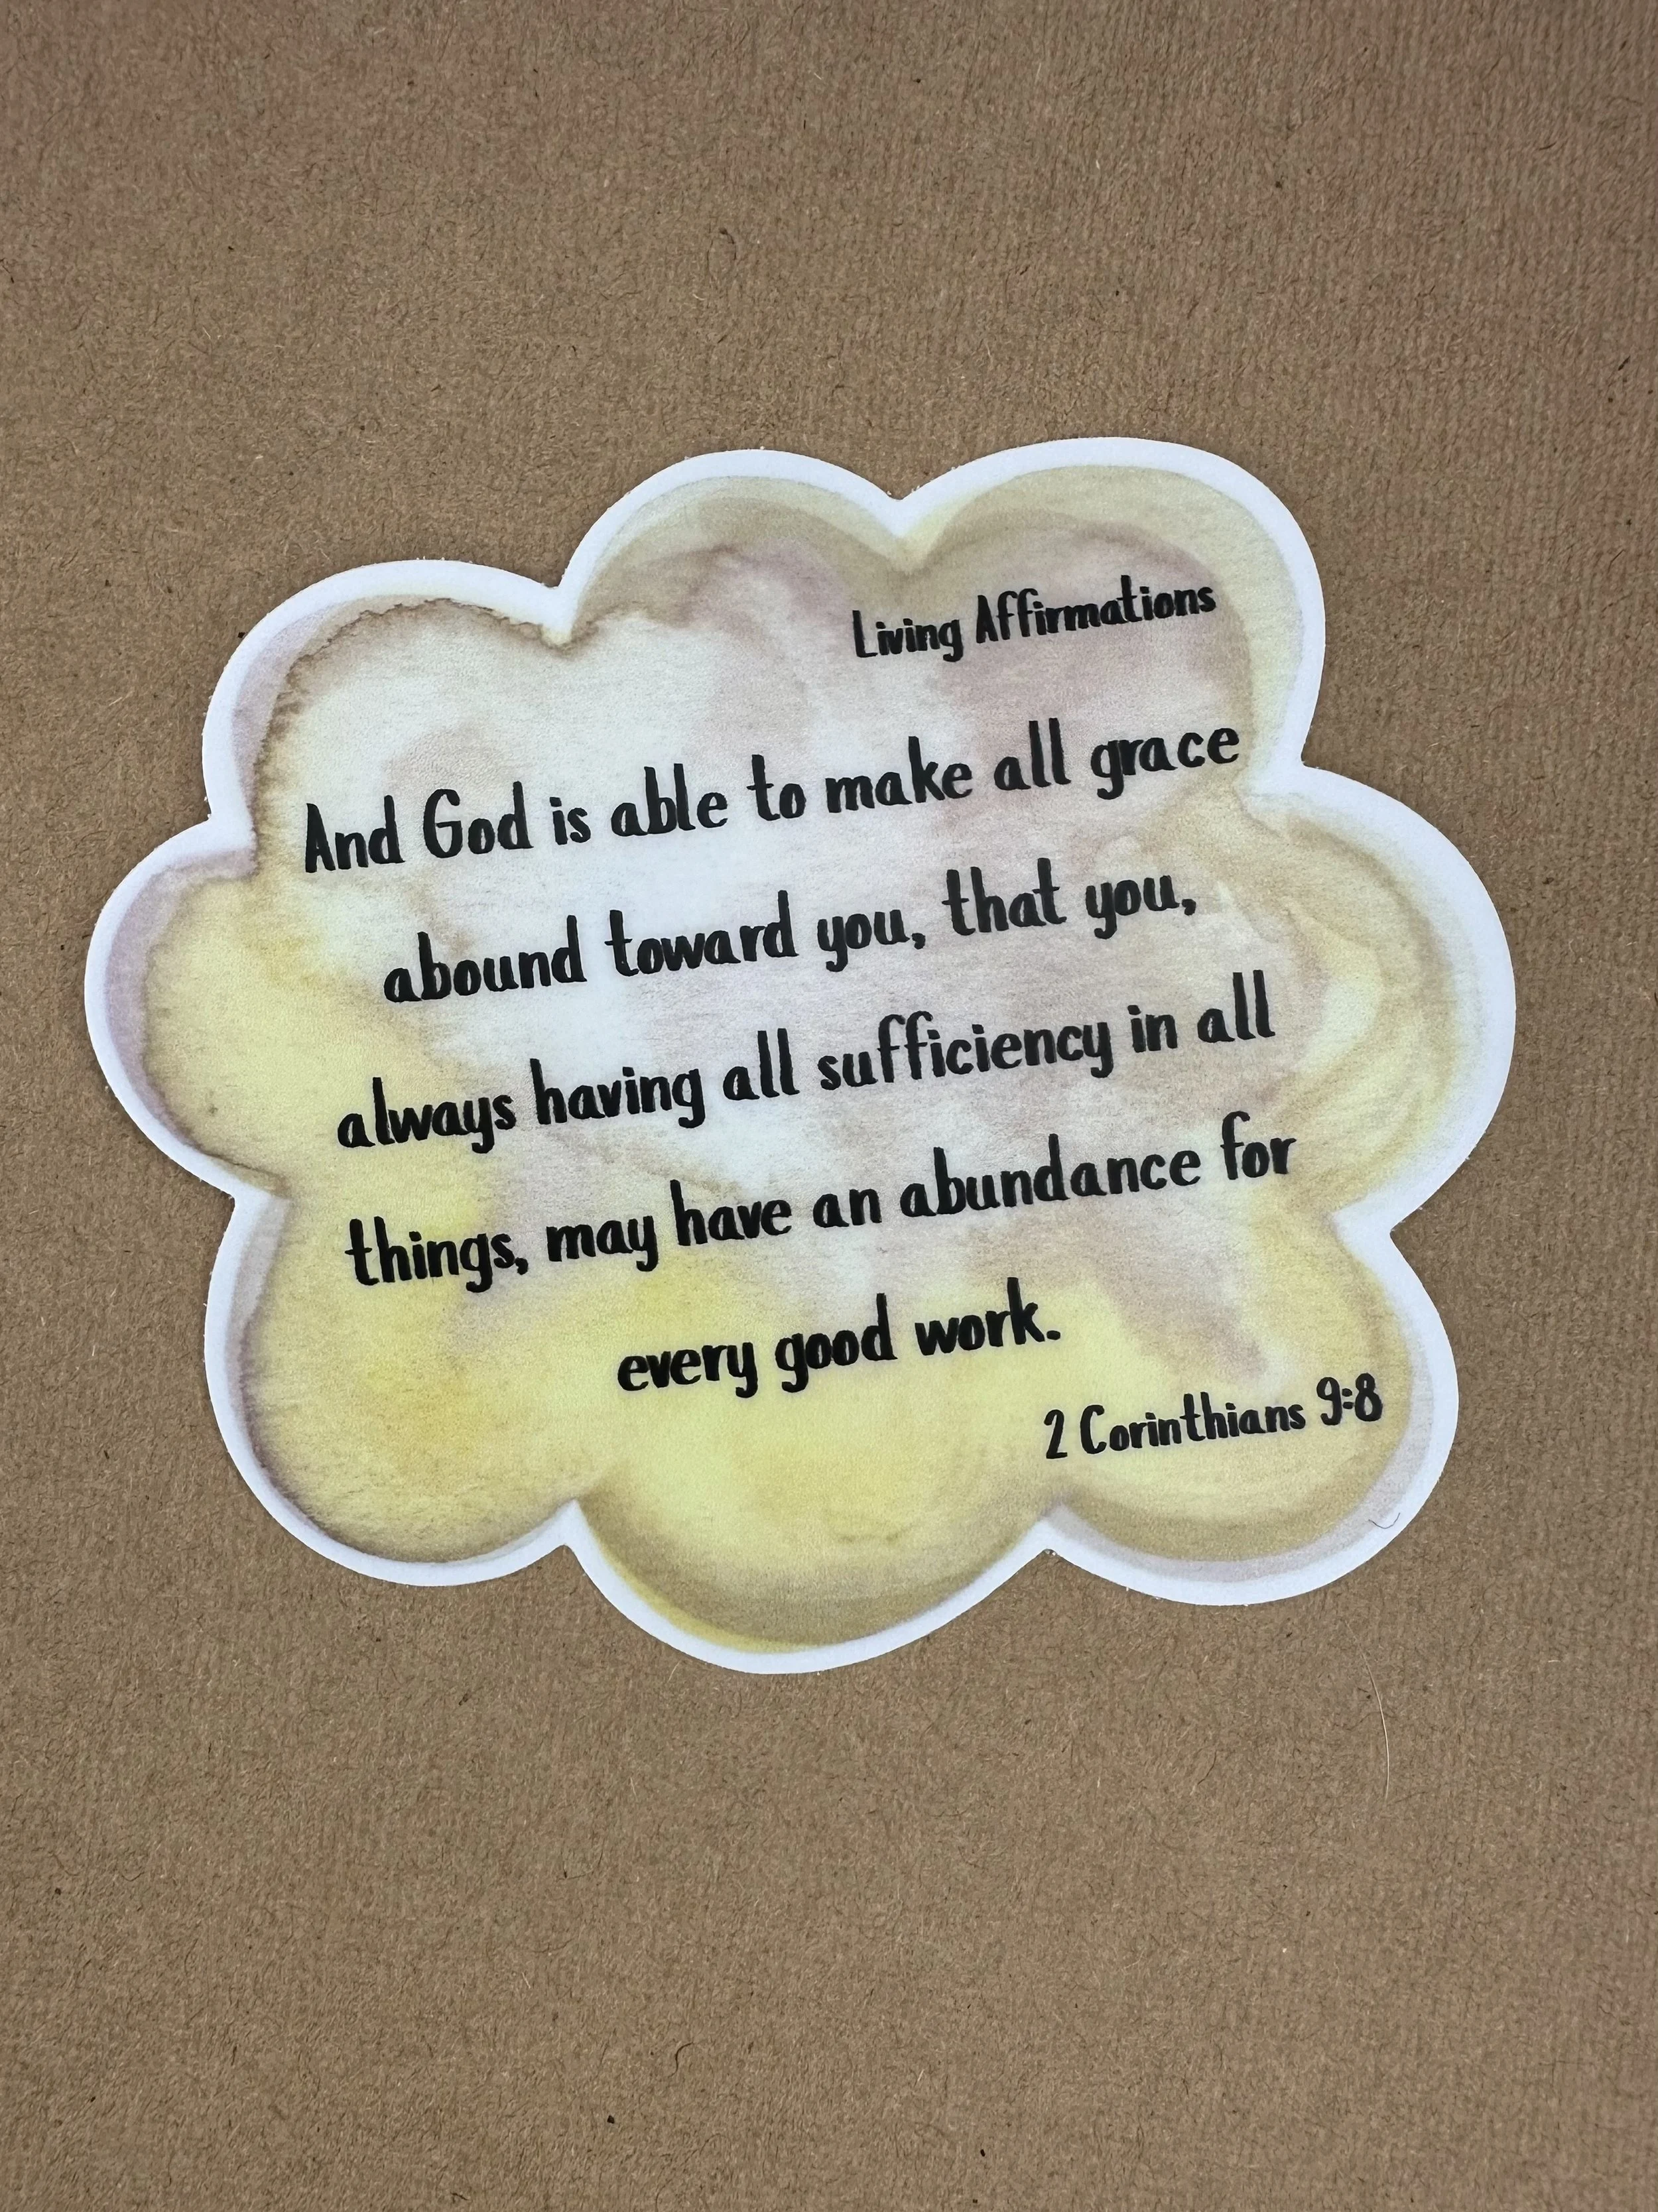 Living Affirmations
And God is able to make all grace
abound toward you, that you,
always having all sufficiency in all
things, may have an abundance for
every good work.
2 Corinthians 9:8